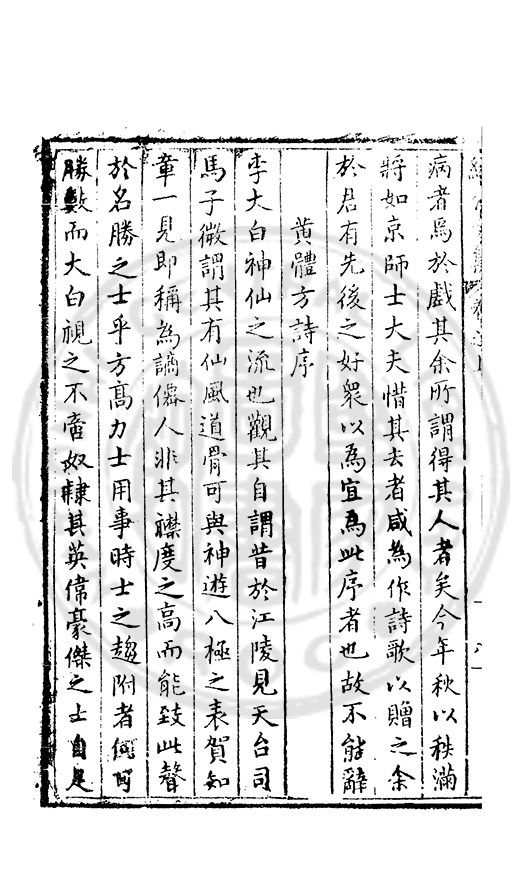 病者焉於戲其余所謂得其人者矣今年秋以秩滿
將如京師士大夫惜其去者咸為作詩歌以贈之余
於君有先後之好眾以為宜為此序者也故不能辭
黃體方詩序
李大白神仙之流也觀其自謂昔於江陵見天台司
馬子微謂其有仙風道骨可與神遊八極之表賀知
章一見即稱為謫僊人非其襟度之高而能致此聲
於名勝之士乎方髙力士用事時士之趨附者何可
勝數而大白視之不啻奴隸其英偉豪傑之士自是